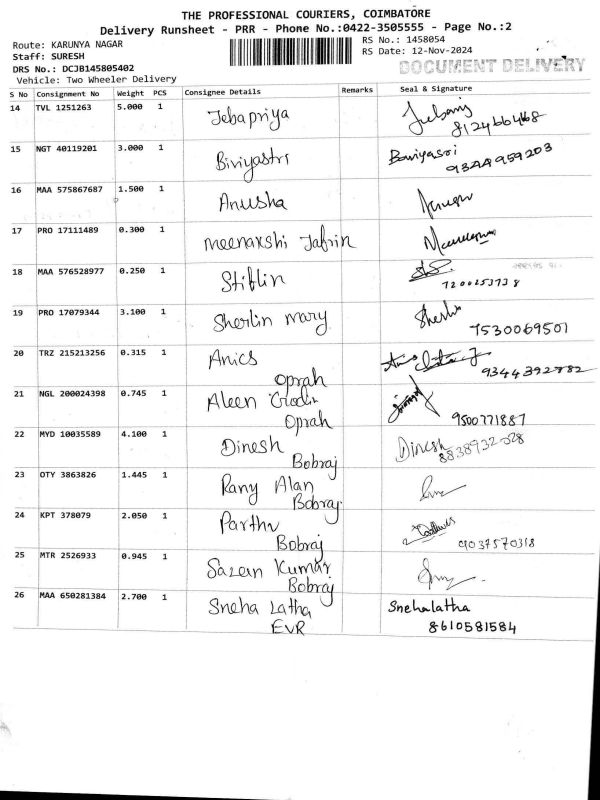 THE PROFESSIONAL COURIERS, COIMBATORE
Delivery Runsheet - PRR - Phone No.:0422-3505555 - Page No.:2
Route: KARUNYA NAGAR RS No.: 1458054
Staff: SURESH RS Date: 12-Nov-2024
DRS No.: DCJB145805402 DOCUMENT DELIVERY
Vehicle: Two Wheeler Delivery
S No Consignment No Weight PCS Consignee Details Remarks Seal & Signature
14 TVL 1251263 5.000 1 Jebapriya
8124660468
15 NGT 40119201 3.000 1 Biviyastri
9344959203
16 MAA 575867687 1.500 1 Anusha
17 PRO 17111489 0.300 1 Meenakshi Jafrin
18 MAA 576528977 0.250 1 Stiflin
7200253738
19 PRO 17079344 3.100 1 Sherlin mary
7530069501
20 TRZ 215213256 0.315 1 Anics
Oprah 9344392782
21 NGL 200024398 0.745 1 Aleen
Oprah 9500771887
22 MYD 10035589 4.100 1 Dinesh Dinesh
Bobraj 8838932028
23 OTY 3863826 1.445 1 Rany Alan
Bobraj
24 KPT 378079 2.050 1 Parthu
Bobraj 9037570318
25 MTR 2526933 0.945 1 Sazein Kumar
Bobraj
26 MAA 650281384 2.700 1 Sneha Latha Snehalatha
EVR 8610581584